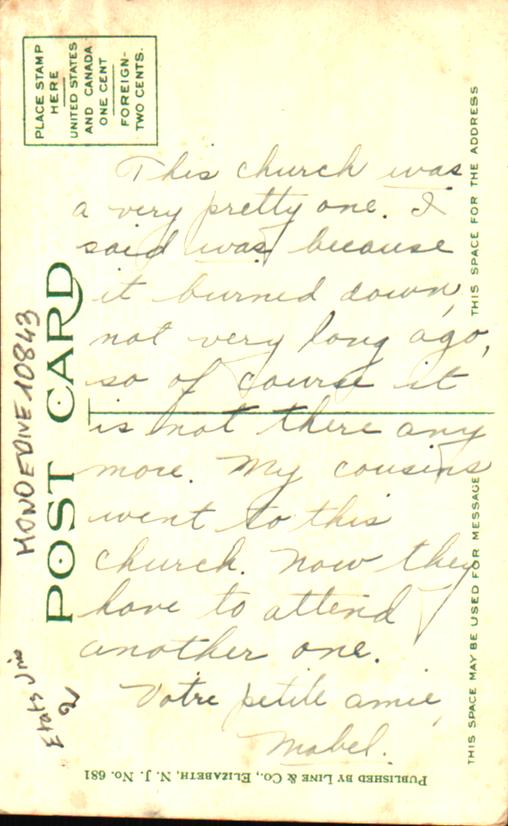 PLACE STAMP
HERE
UNITED STATES
AND CANADA
ONE CENT
FOREIGN-
TWO CENTS.
POST CARD
THIS SPACE FOR THE ADDRESS
THIS SPACE MAY BE USED FOR MESSAGE
This church was
a very pretty one. I
said was because
it burned down,
not very long ago,
so of course it
is not there any
more. My cousins
went to this
church. Now they
have to attend
another one.
Votre petite amie,
Mabel.
PUBLISHED BY LINE & CO., ELIZABETH, N. J. No. 681
MONDEDIVE10843
Etats Unis
2